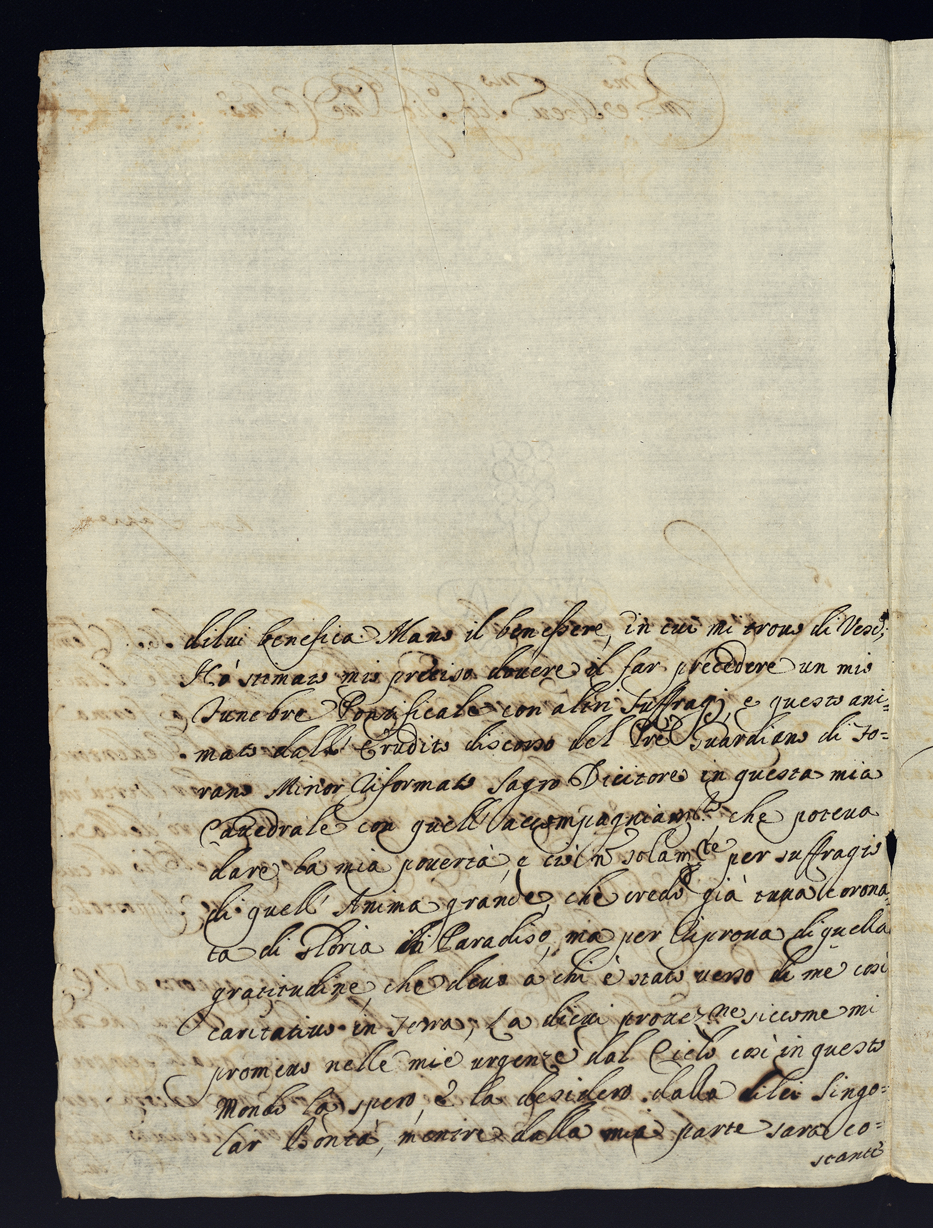 dilui benefica Mano il ben essere, in cui mi trovo di Vesc:
Hò stimato mio preciso dovere il far precedere un mio
Funebre Pontificale con altri Suffragj, e questo ani=
mato dall' Erudito discorso del Pre Guardiano di Fo=
rano Minor Riformato Sagro Dicitore in questa mia
Catedrale con quell' accompagniamto, che poteva
dare la mia povertà, e ciò nō solamte per suffragio
di quell' Anima grande, che credo già tutta Corona=
ta di Gloria in Paradiso, ma per riprova di quella
gratitudine, che devo a chi è stato verso di me così
caritativo in Terra, La dicui protezne siccome mi
prometto nelle mie urgenze dal Cielo così in questo
Mondo la spero, è la desidero dalla dilei Singo=
lar Bontà, mentre dalla mia parte sarò co=
stante